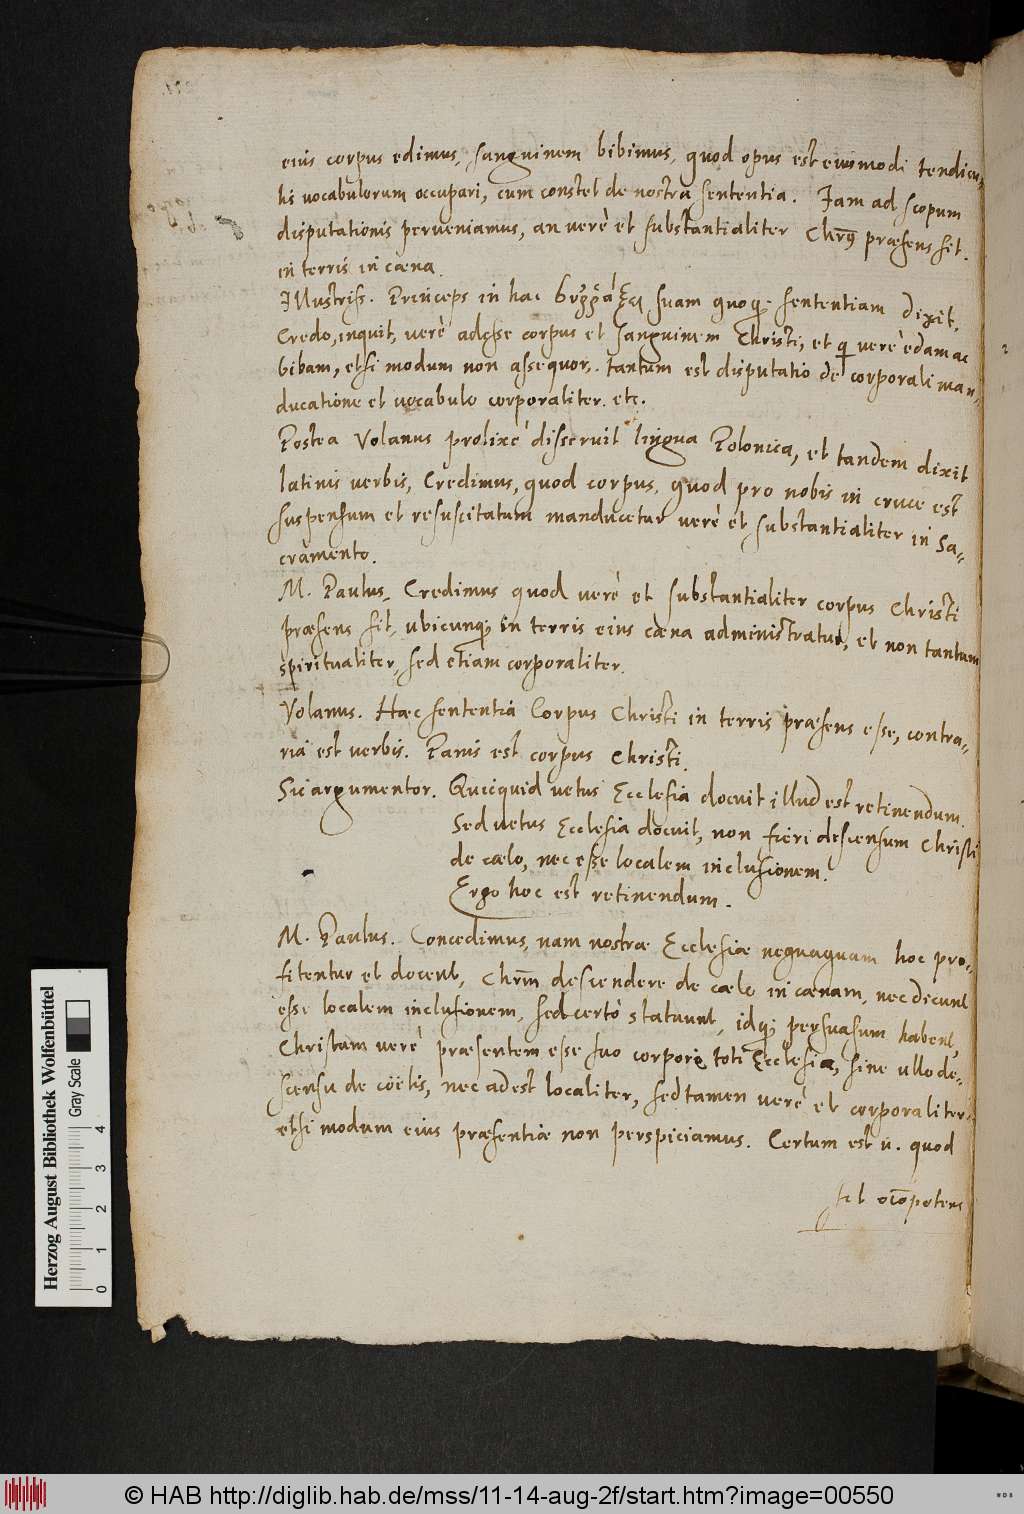 eius corpus edimus, sanguinem bibimus, quod opus est eiusmodi tendicu-
lis vocabulorum occupari, cum constet de nostra sententia. Jam ad scopum
disputationis perveniamus, an verè et substantialiter Chrūs præsens sit.
in terris in cæna.
Illustriss. Princeps in hac suam quoq; sententiam dixit.
Credo, inquit, verè adesse corpus et sanguinem Christi, et q verè edam ac
bibam, etsi modum non assequor. tantum est disputatio de corporali man-
ducatione et vocabulo corporaliter. etc.
Postea Volanus prolixè disseruit lingua Polonica, et tandem dixit
latinis verbis, Credimus, quod corpus, quod pro nobis in cruce est
suspensum et resuscitatum manducetur verè et substantialiter in Sa-
cramento.
M. Paulus. Credimus quod verè et substantialiter corpus Christi
præsens sit, ubicunq; in terris eius cæna administratur, et non tantum
spiritualiter, sed etiam corporaliter.
Volanus. Hæc sententia Corpus Christi in terris præsens esse, contra-
ria est verbis. Panis est corpus Christi.
Sic argumentor. Quicquid vetus Ecclesia docuit illud est retinendum.
Sed vetus Ecclesia docuit, non fieri descensum Christi
de cælo, nec esse localem inclusionem.
Ergo hoc est retinendum.
M. Paulus. Concedimus, nam nostræ Ecclesiæ nequaquam hoc pro-
fitentur et docent, Chrm̄ descendere de cælo in cænam, nec dicunt
esse localem inclusionem, sed certò statuunt, idq; persuasum habent,
Christum verè præsentem esse suo corpore toti Ecclesiæ, sine ullo de-
scensu de cöelis, nec adest localiter, sed tamen verè et corporaliter.
etsi modum eius præsentiæ non perspiciamus. Certum est n. quod
sit oīopotens
Herzog August Bibliothek Wolfenbüttel
Gray Scale
0 1 2 3 4
© HAB http://diglib.hab.de/mss/11-14-aug-2f/start.htm?image=00550